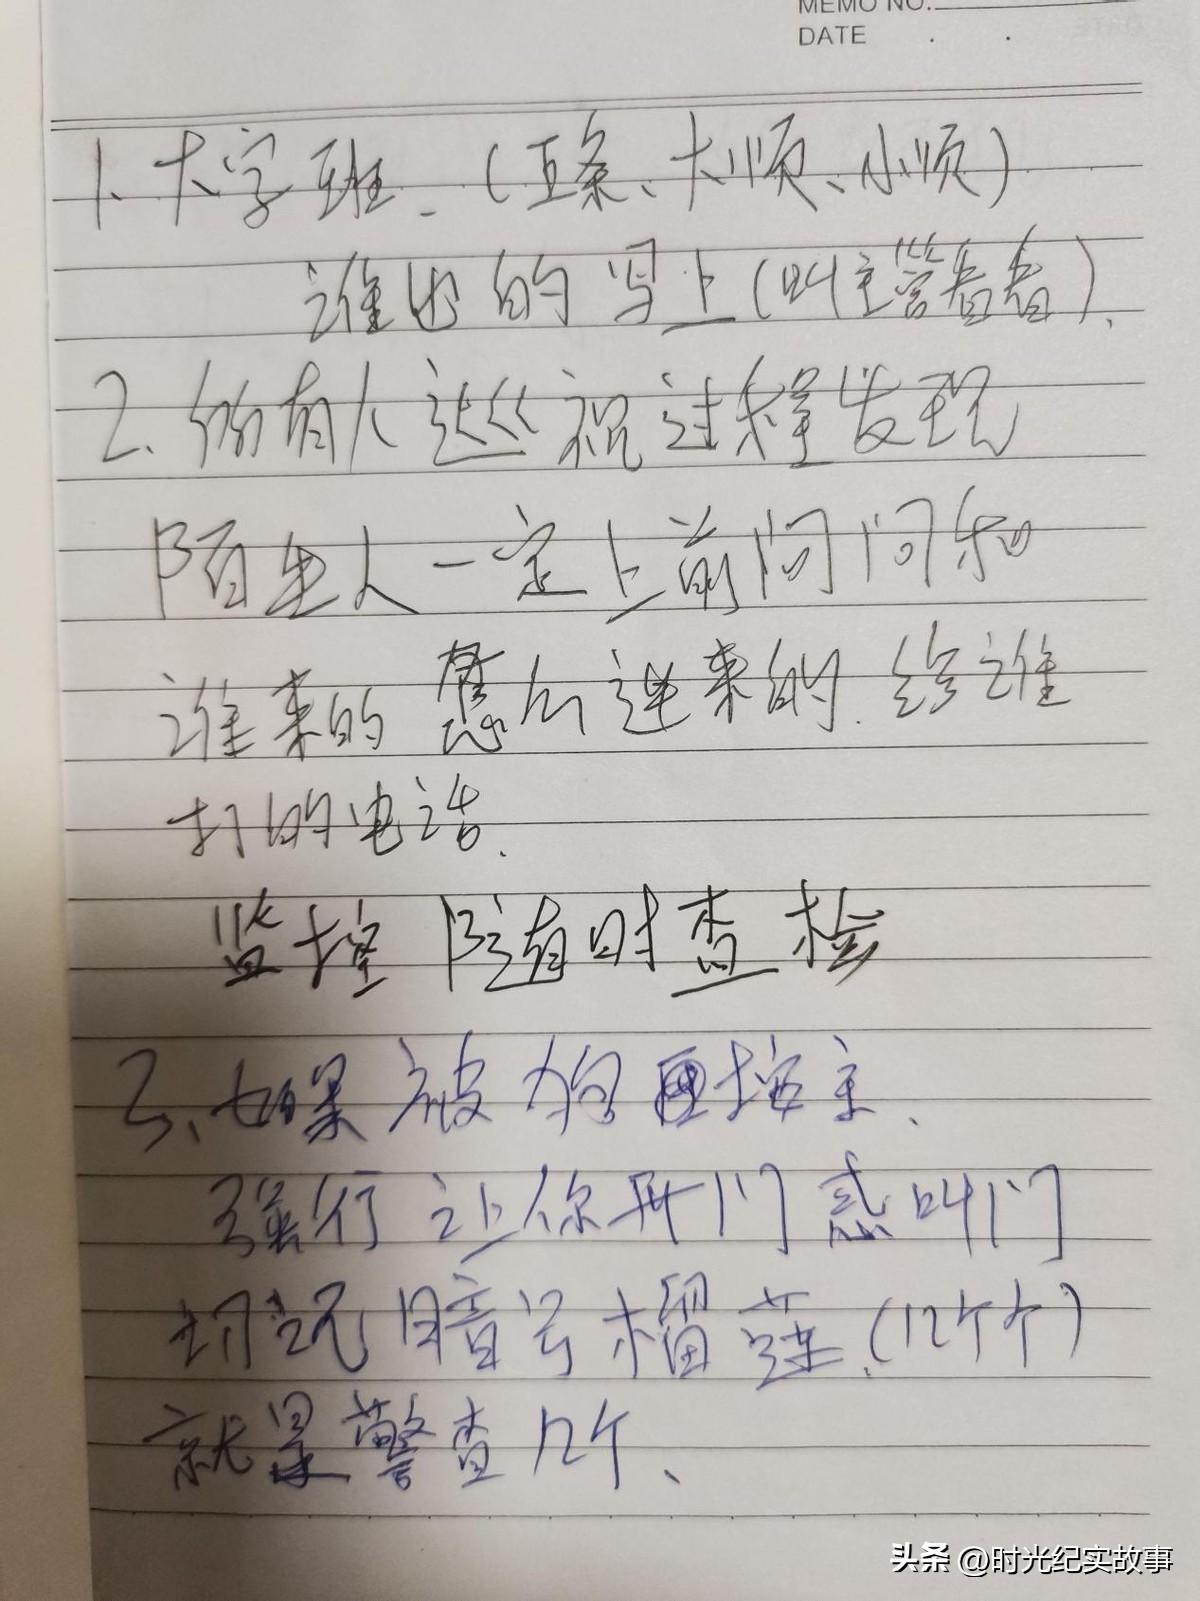 MEMO NO.
DATE . .
1、大字班.(豆条、大顺、小顺)
谁出的写上(叫主营者看).
2.所有人巡视过程发现
陌生人一定上前问问和
谁来的 怎么进来的.给谁
打的电话.
监控 随时查检
3、如果被狗堵主、
强行让你开门惑叫门
切记暗号榴莲.(几个个)
就是警查几个、
头条 @时光纪实故事